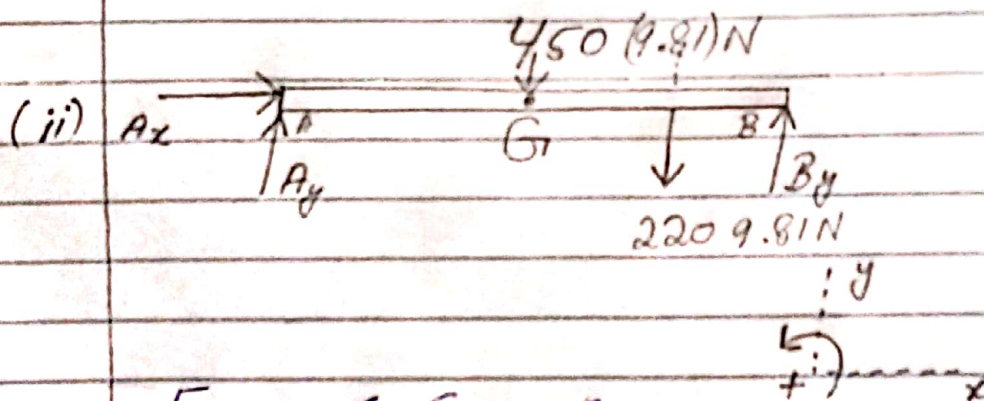 450 (9.81)N
(ii) Ax A G B
Ay By
220 9.81N
y
+ x